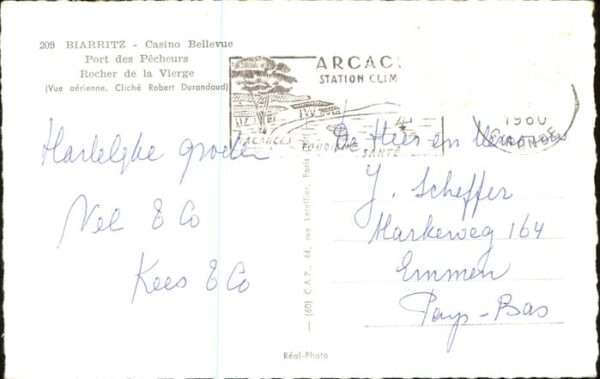 209 BIARRITZ - Casino Bellevue
Port des Pêcheurs
Rocher de la Vierge
(Vue aérienne, Cliché Robert Durandaud)
ARCAC
STATION CLIM
VACANCES
SANTÉ
1960
GIRONDE
Hartelijke groeten
Nel & Co
Kees & Co
(60) C.A.P., 44, rue Letellier, Paris
De Heer en Mevr
J. Scheffer
Markeweg 164
Emmen
Pays-Bas
Réal-Photo